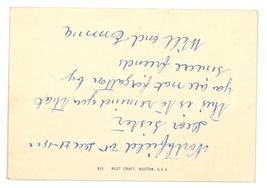 Northfield Vt Dec 21-
Dear Sister
This is to remind you that
you are not forgotten by
sincere friends
Will and Emma
RUST CRAFT, BOSTON, U.S.A.